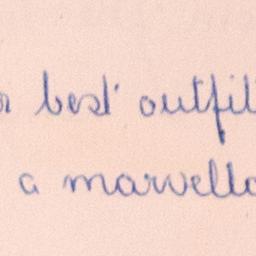 best outfit
a marvello